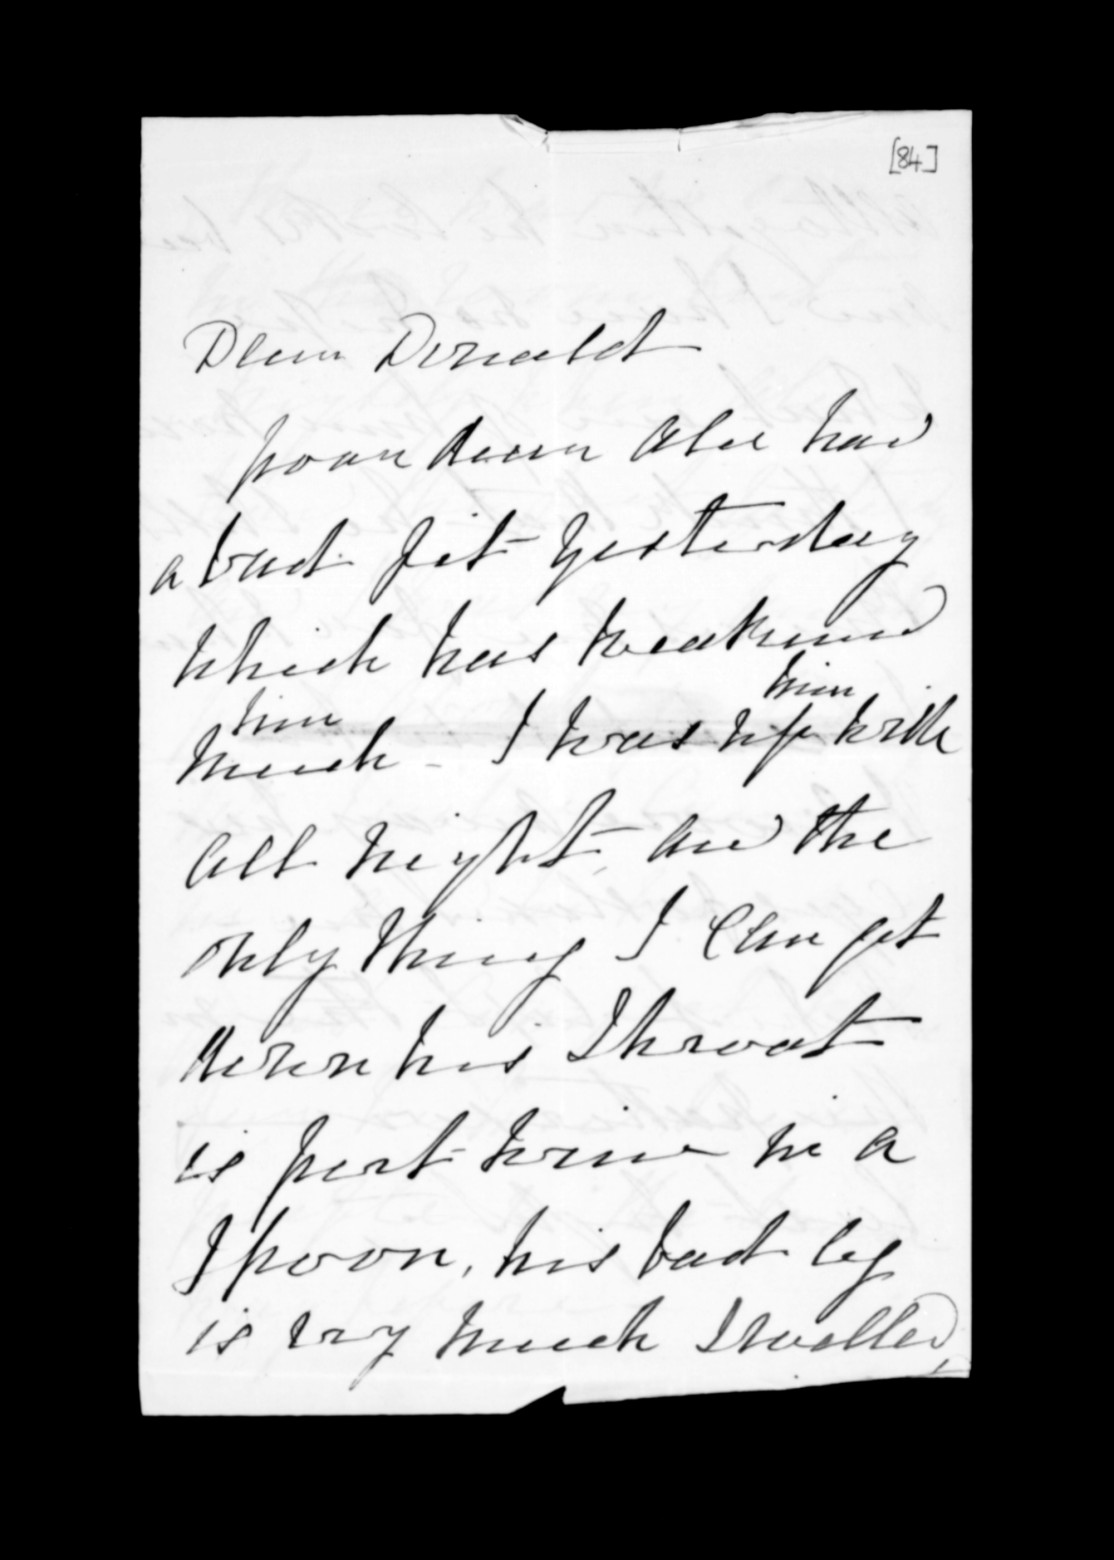 [84]
Dear Donald
poor dear Alec had
a bad fit yesterday
which has weakened
him
much - I was up with
him
all night and the
only thing I can get
down his throat
is port wine in a
spoon, his bad leg
is very much swollen